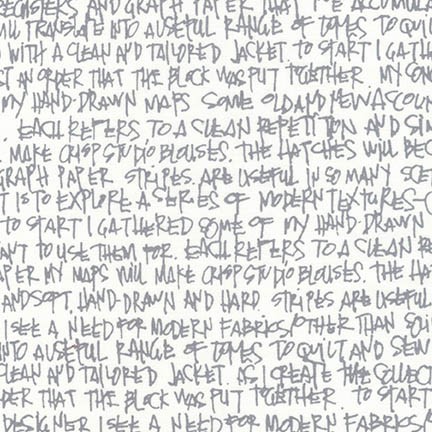 REGISTERS AND GRAPH PAPER THAT I'VE ACCUMUL
WILL TRANSLATE INTO A USEFUL RANGE OF TOMES TO QUIL
WITH A CLEAN AND TAILORED JACKET TO START I GATH
ST AN ORDER THAT THE BLOCK WAS PUT TOGETHER MY SON
MY HAND-DRAWN MAPS SOME OLD AND NEW A COUN
EACH REFERS TO A CLEAN REPETITION AND SIM
MAKE CRISP STUDIO BLOUSES. THE HATCHES WILL BEC
GRAPH PAPER STRIPES. ARE USEFUL IN SO MANY SCE
T IS TO EXPLORE A SERIES OF MODERN TEXTURES-C
TO START I GATHERED SOME OF MY HAND-DRAWN
ANT TO USE THEM FOR. EACH REFERS TO A CLEAN RE
APER MY MAPS WILL MAKE CRISP STUDIO BLOUSES. THE HA
AND SOFT HAND-DRAWN AND HARD. STRIPES ARE USEFUL
I SEE A NEED FOR MODERN FABRICS/OTHER THAN SOL
INTO A USEFUL RANGE OF TOMES TO QUILT AND SEW
CLEAN AND TAILORED JACKET. AS I CREATE THE COLLECT
DER THAT THE BLOCK WAS PUT TOGETHER TO START
DESIGNER I SEE A NEED FOR MODERN FABRICS/